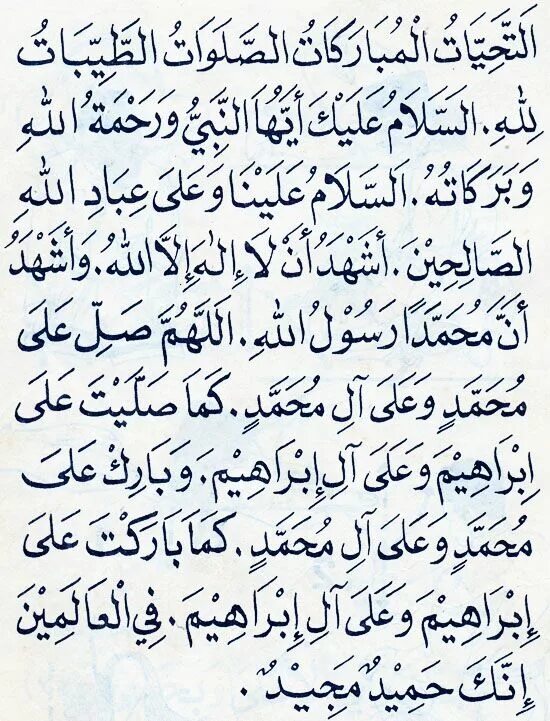 اَلتَّحِيَّاتُ الْمُبَارَكَاتُ الصَّلَوَاتُ الطَّيِّبَاتُ
لِلّٰهِ. السَّلَامُ عَلَيْكَ أَيُّهَا النَّبِيُّ وَرَحْمَةُ اللهِ
وَبَرَكَاتُهُ. السَّلَامُ عَلَيْنَا وَعَلَى عِبَادِ اللهِ
الصَّالِحِيْنَ. أَشْهَدُ أَنْ لَا إِلٰهَ إِلَّا اللهُ. وَأَشْهَدُ
أَنَّ مُحَمَّدًا رَسُوْلُ اللهِ. اَللَّهُمَّ صَلِّ عَلَى
مُحَمَّدٍ وَعَلَى آلِ مُحَمَّدٍ. كَمَا صَلَّيْتَ عَلَى
إِبْرَاهِيْمَ وَعَلَى آلِ إِبْرَاهِيْمَ. وَبَارِكْ عَلَى
مُحَمَّدٍ وَعَلَى آلِ مُحَمَّدٍ. كَمَا بَارَكْتَ عَلَى
إِبْرَاهِيْمَ وَعَلَى آلِ إِبْرَاهِيْمَ. فِي الْعَالَمِيْنَ
إِنَّكَ حَمِيْدٌ مَجِيْدٌ.